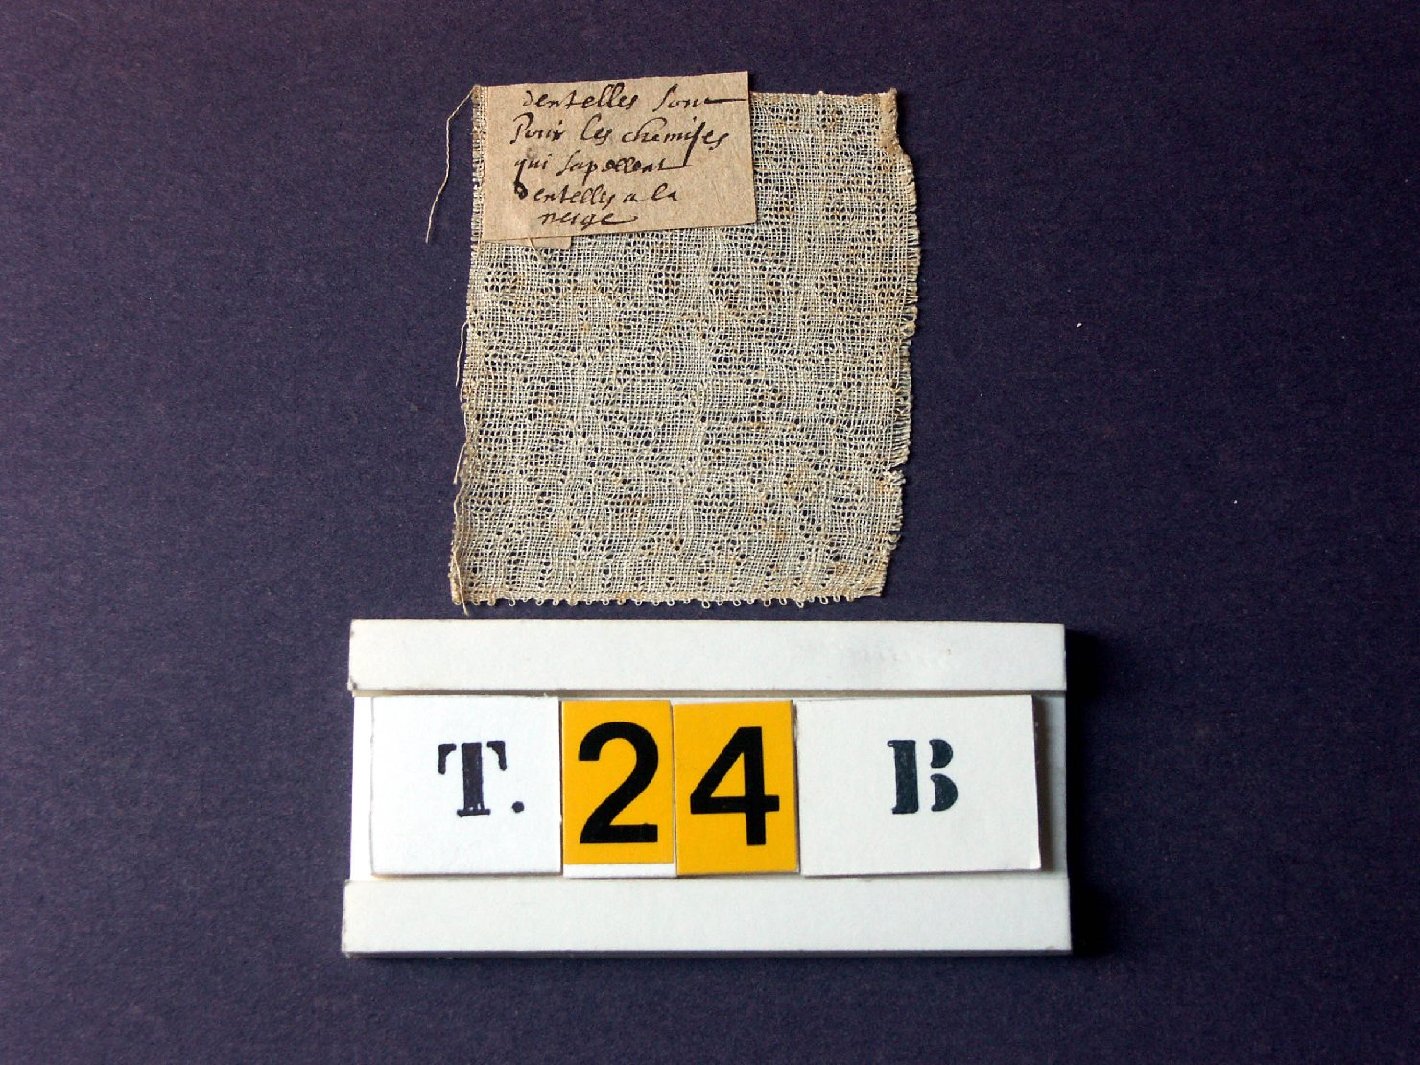 dentelles sont
Pour les chemises
qui sapellent
dentelles a la
neige
T. 24 B